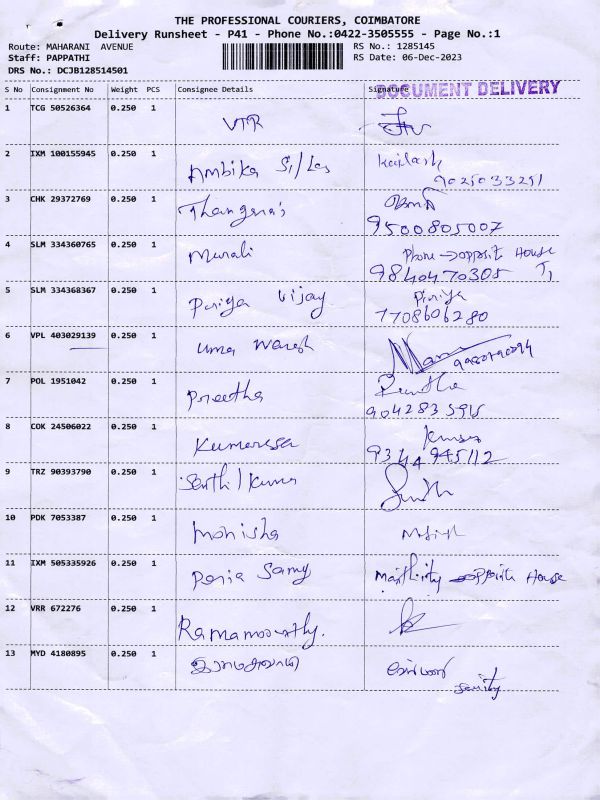 THE PROFESSIONAL COURIERS, COIMBATORE
Delivery Runsheet - P41 - Phone No.:0422-3505555 - Page No.:1
Route: MAHARANI AVENUE RS No.: 1285145
Staff: PAPPATHI RS Date: 06-Dec-2023
DRS No.: DCJB128514501
DOCUMENT DELIVERY
S No Consignment No Weight PCS Consignee Details Signature
1 TCG 50526364 0.250 1 VTR
2 IXM 100155945 0.250 1 Ambika Kailash
9025033251
3 CHK 29372769 0.250 1 Thangaras
9500805007
4 SLM 334360765 0.250 1 Murali Phone → opposit House
9840470305
5 SLM 334368367 0.250 1 Puriya Vijay Puriya
7708606280
6 VPL 403029139 0.250 1 Uma
7 POL 1951042 0.250 1 Preetha
8 COK 24506022 0.250 1 Kumaresa
9344945112
9 TRZ 90393790 0.250 1 Senthil Kumar
10 PDK 7053387 0.250 1 Monisha
11 IXM 505335926 0.250 1 Peria Samy opposite House
12 VRR 672276 0.250 1 Ramamoorthy.
13 MYD 4180895 0.250 1